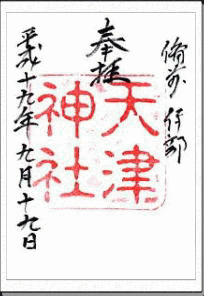 備前 伊部
奉拝
天津
神社
平成十九年 九月十九日